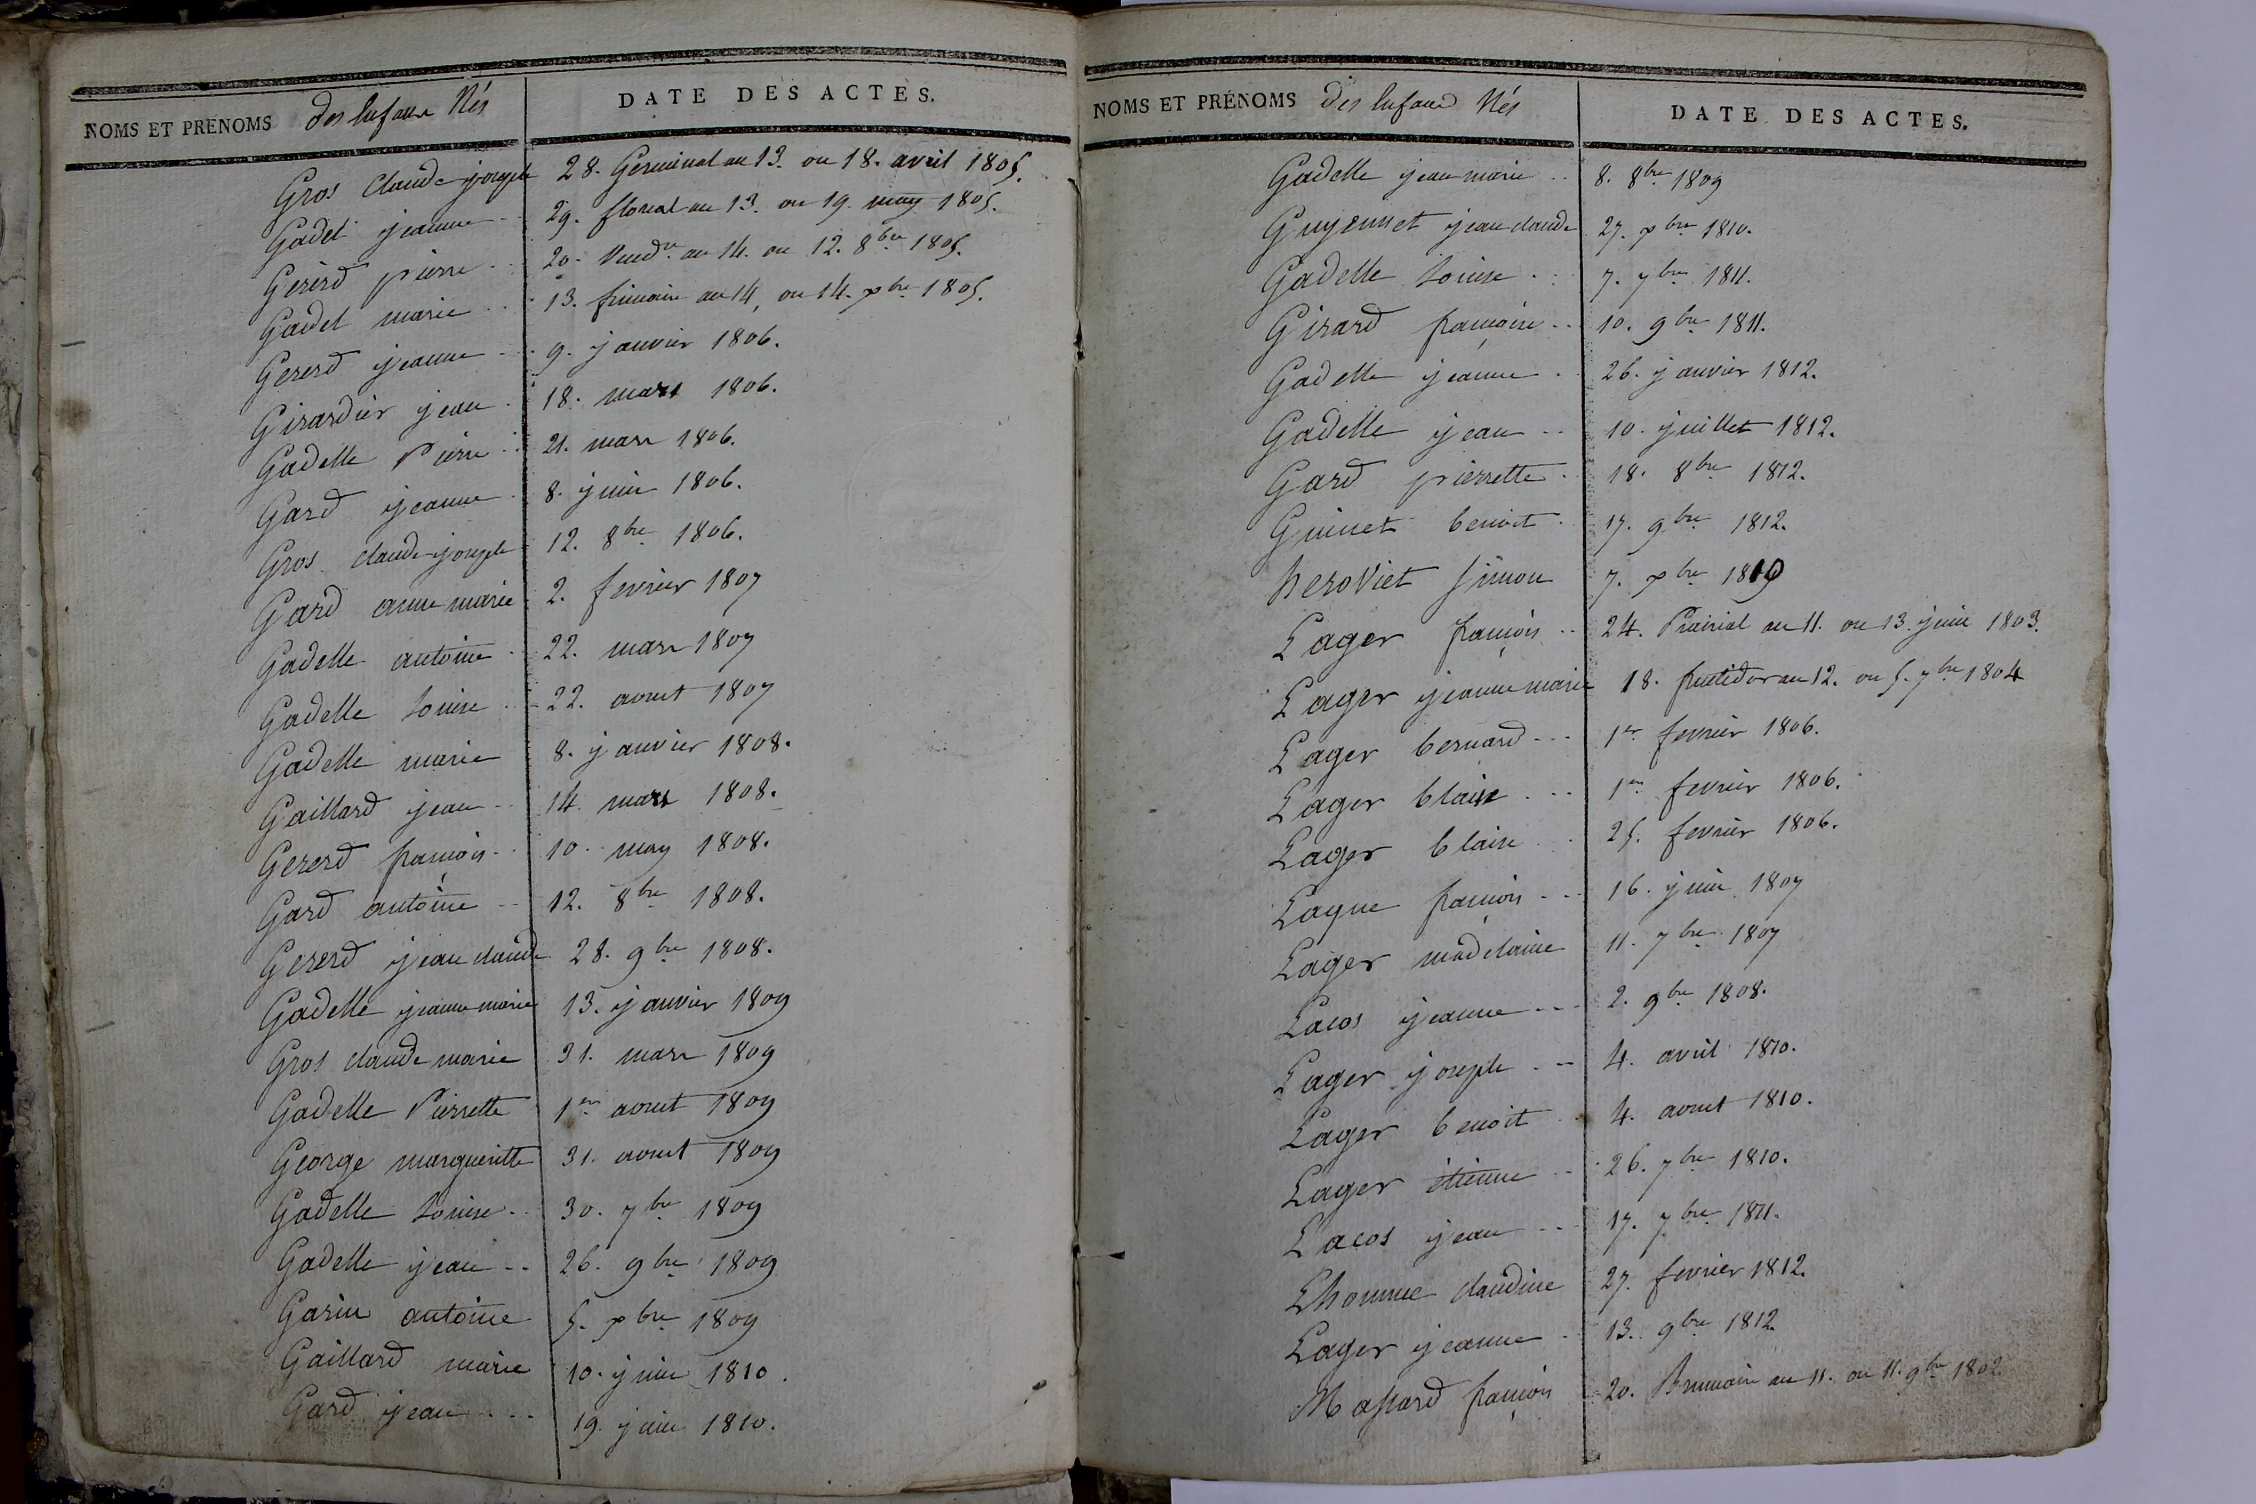 NOMS ET PRÉNOMS des Enfans Nés
DATE DES ACTES.
Gros Claude joseph 28. Germinal an 13. ou 18. avril 1805.
Gadet jeanne 29. floreal an 13. ou 19. may 1805.
Gererd pierre 20. Vend.re an 14. ou 12. 8bre 1805.
Gadet marie 13. frimaire an 14, ou 14. xbre 1805.
Gererd jeanne 9. janvier 1806.
Girardier jean 18. mars 1806.
Gadelle Pierre 21. mars 1806.
Gard jeanne 8. juin 1806.
Gros claude joseph 12. 8bre 1806.
Gard anne marie 2. fevrier 1807
Gadelle antoine 22. mars 1807
Gadelle Louise 22. aout 1807
Gadelle marie 8. janvier 1808.
Gaillard jean 14. mars 1808.
Gererd françois 10. may 1808.
Gard antoine 12. 8bre 1808.
Gererd jean claude 28. 9bre 1808.
Gadelle jeanne marie 13. janvier 1809
Gros claude marie 31. mars 1809
Gadelle Pierrette 1er aout 1809
George margueritte 31. aout 1809
Gadelle Louise 30. 7bre 1809
Gadelle jean 26. 9bre 1809
Garin antoine 5. xbre 1809
Gaillard marie 10. juin 1810.
Gard jean 19. juin 1810.
NOMS ET PRÉNOMS des Enfans Nés
DATE DES ACTES.
Gadelle jean marie 8. 8bre 1809
Guyennet jean claude 27. xbre 1810.
Gadelle Louise 7. 7bre 1811.
Girard françoise 10. 9bre 1811.
Gadelle jeanne 26. janvier 1812.
Gadelle jean 10. juillet 1812.
Gard pierrette 18. 8bre 1812.
Guinet benoit 17. 9bre 1812.
heroviet Simon 7. xbre 1810
Lager françois 24. Prairial an 11. ou 13. juin 1803.
Lager jeanne marie 18. fructidor an 12. ou 5. 7bre 1804
Lager bernard 1er fevrier 1806.
Lager blaise 1er fevrier 1806.
Lager blaise 25. fevrier 1806.
Lague françois 16. juin 1807
Lager madelaine 11. 7bre 1807
Lacos jeanne 2. 9bre 1808.
Lager joseph 4. avril 1810.
Lager benoit 4. aout 1810.
Lager étienne 26. 7bre 1810.
Lacos jean 17. 7bre 1811.
Lhomme claudine 27. fevrier 1812.
Lager jeanne 13. 9bre 1812.
Massard françois 20. Brumaire an 11. ou 11. 9bre 1802